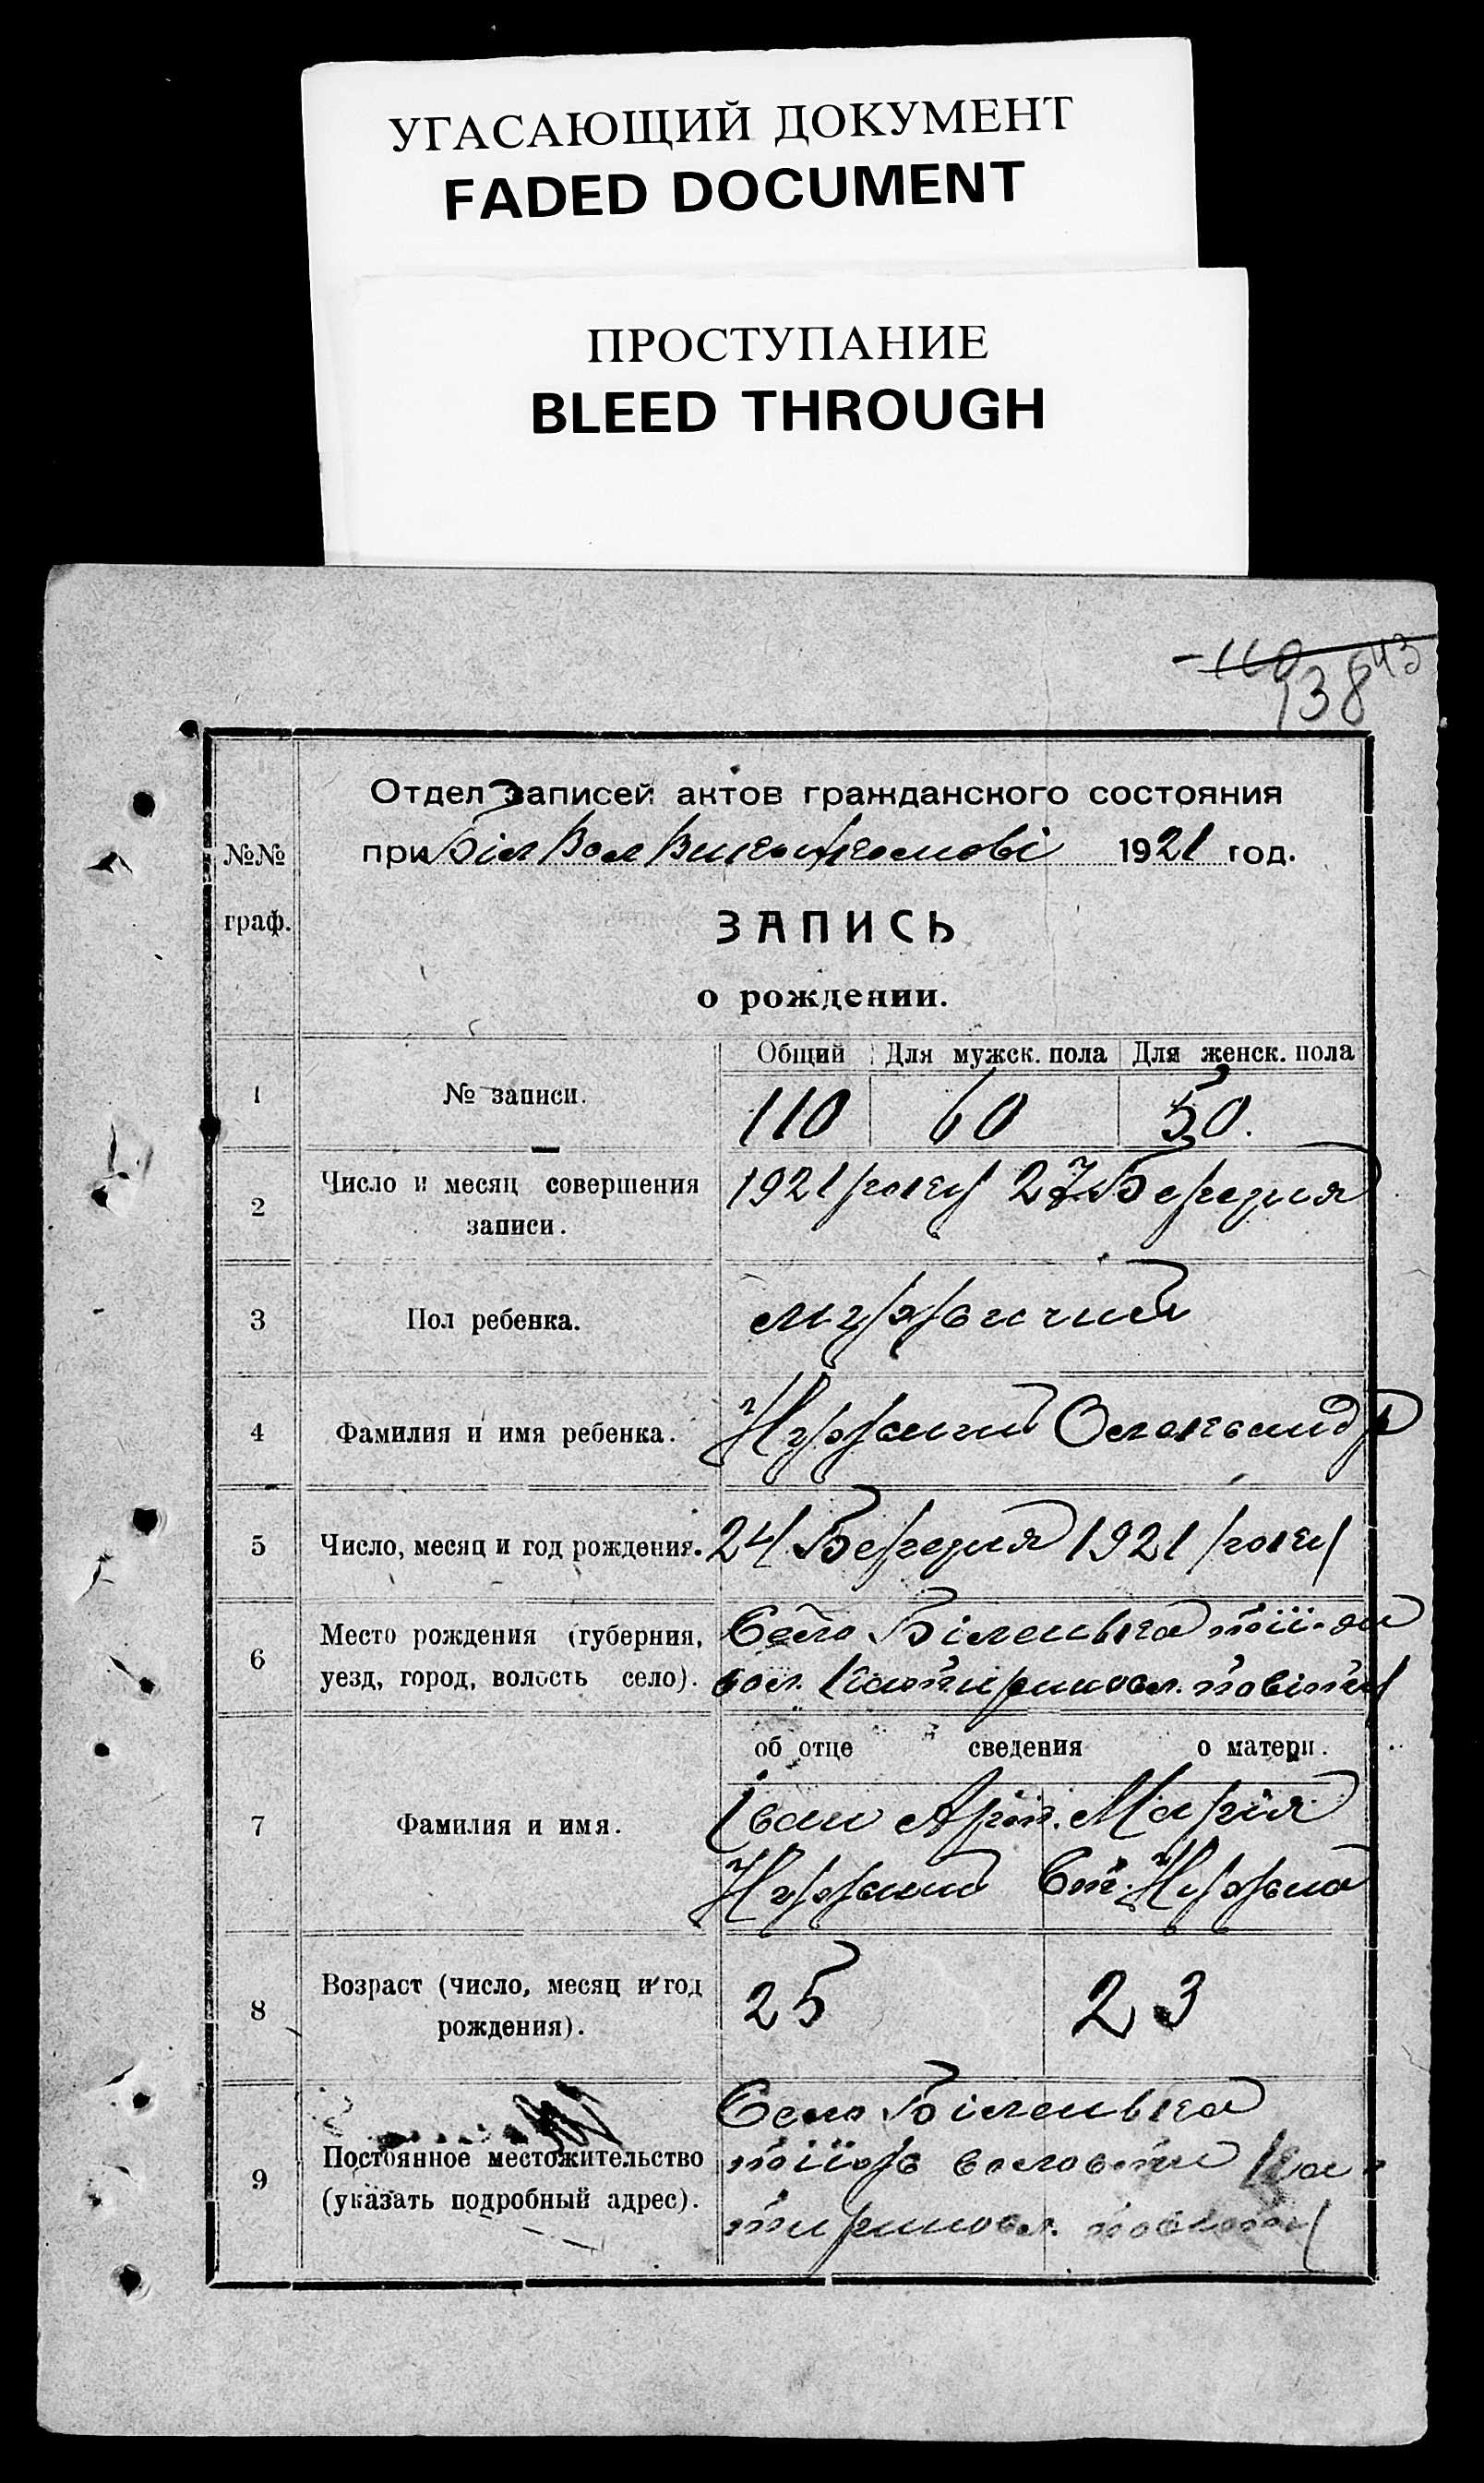 УГАСАЮЩИЙ ДОКУМЕНТ
FADED DOCUMENT
ПРОСТУПАНИЕ
BLEED THROUGH
110
138
43
Отдел записей актов гражданского состояния
№№ граф.
при Біл Вол Виконкомові 1921 год.
ЗАПИСЬ
о рождении.
Общий Для мужск. пола Для женск. пола
1 № записи. 110 60 50.
2 Число и месяц совершения записи. 1921 року 27 Березня
3 Пол ребенка.
4 Фамилия и имя ребенка. Олександр
5 Число, месяц и год рождения. 24 Березня 1921 року
6 Место рождения (губерния, Село Біленька
уезд, город, волость село). вол. повіту
об отце сведения о матери.
7 Фамилия и имя. Іван Арт. Марія
8 Возраст (число, месяц и год рождения). 25 23
9 Село Біленька
Постоянное местожительство волости
(указать подробный адрес). повіту